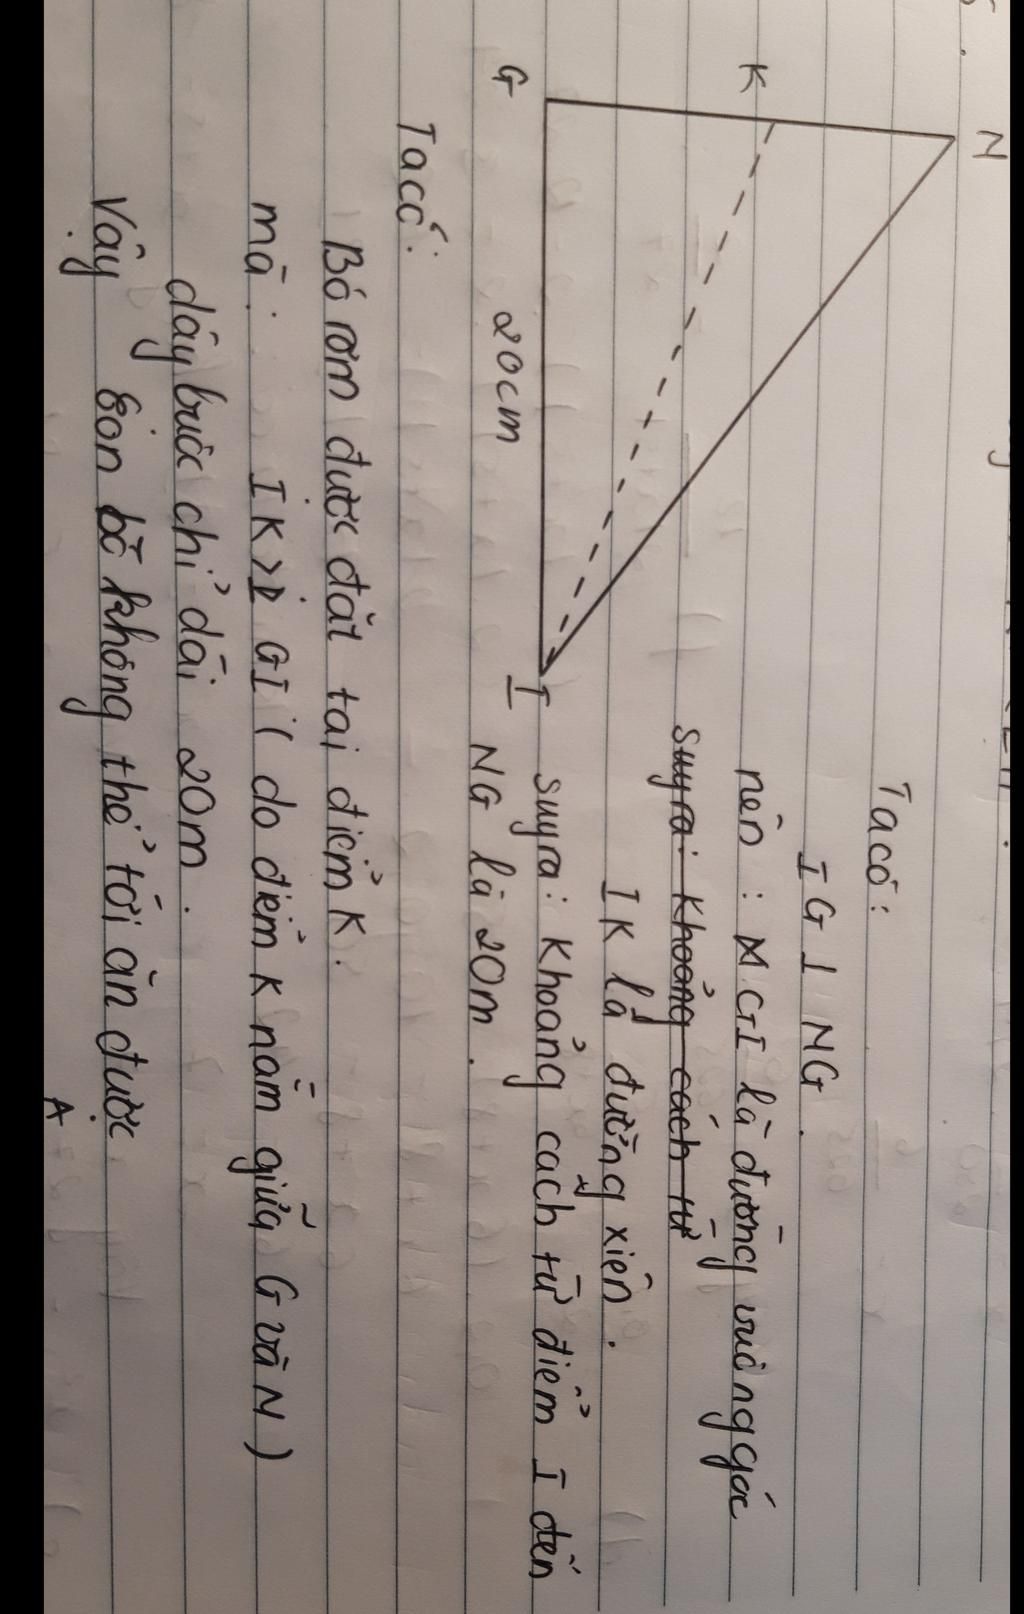 N
K
G
20cm
I
Ta có:
IG ⊥ NG.
nên: GI là đường vuông góc
suy ra: khoảng cách từ
IK là đường xiên.
suy ra: khoảng cách từ điểm I đến
NG là 20m.
Ta có:
Bó rơm được đặt tại điểm K.
mà: IK > GI (do điểm K nằm giữa G và N)
dây buộc chỉ dài 20m.
Vậy con bò không thể tới ăn được
A